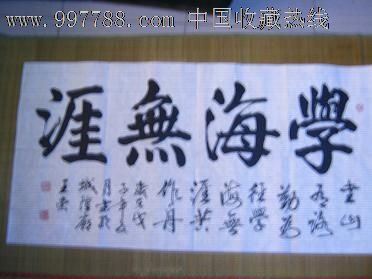 www.997788.com 中国收藏热线
學海無涯
書山
有路
勤為
徑學
海無
涯苦
作舟
歲次戊
子年
月書於
城隍廟